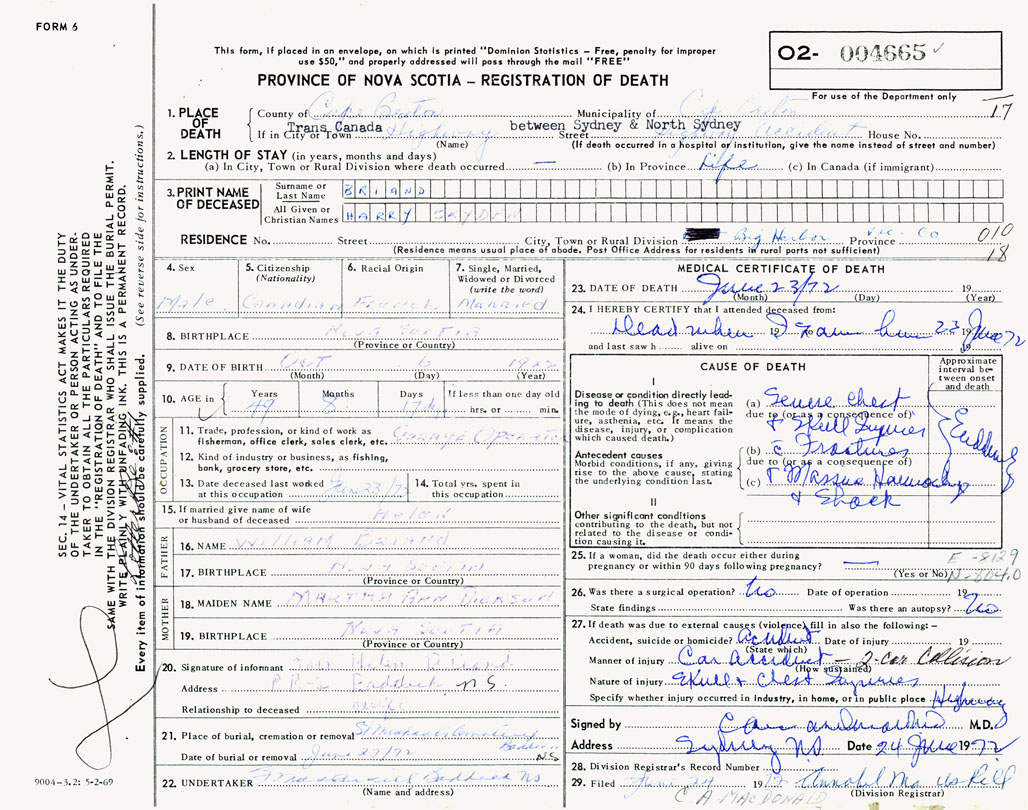 FORM 6
This form, if placed in an envelope, on which is printed "Dominion Statistics – Free, penalty for improper
use $50," and properly addressed will pass through the mail "FREE"
PROVINCE OF NOVA SCOTIA – REGISTRATION OF DEATH
02- 004665
For use of the Department only
17
1. PLACE OF DEATH
County of Cape Breton Municipality of Cape Breton
If in City or Town Trans Canada Highway between Sydney & North Sydney Street Highway Accident House No.
(Name) (If death occurred in a hospital or institution, give the name instead of street and number)
2. LENGTH OF STAY (in years, months and days)
(a) In City, Town or Rural Division where death occurred — (b) In Province Life (c) In Canada (if immigrant)
3. PRINT NAME OF DECEASED
Surname or Last Name BRIAND
All Given or Christian Names HARRY
RESIDENCE No. Street City, Town or Rural Division Big Harbor Province Vic. Co 010
(Residence means usual place of abode. Post Office Address for residents in rural parts not sufficient) 18
4. Sex
Male
5. Citizenship
(Nationality)
Canadian
6. Racial Origin
French
7. Single, Married, Widowed or Divorced
(write the word)
Married
8. BIRTHPLACE Nova Scotia
(Province or Country)
9. DATE OF BIRTH Oct 6 1922
(Month) (Day) (Year)
10. AGE in Years Months Days If less than one day old
49 8 17 days hrs. or min.
OCCUPATION
11. Trade, profession, or kind of work as
fisherman, office clerk, sales clerk, etc. Garage Operator
12. Kind of industry or business, as fishing,
bank, grocery store, etc.
13. Date deceased last worked
at this occupation June 23/72
14. Total yrs. spent in
this occupation
15. If married give name of wife
or husband of deceased Helen
FATHER
16. NAME William Briand
17. BIRTHPLACE Nova Scotia
(Province or Country)
MOTHER
18. MAIDEN NAME Ann
19. BIRTHPLACE Nova Scotia
(Province or Country)
20. Signature of informant Helen Briand
Address N.S.
Relationship to deceased wife
21. Place of burial, cremation or removal St Michaels Baddeck N.S
Date of burial or removal June 27/72
22. UNDERTAKER Baddeck NS
(Name and address)
MEDICAL CERTIFICATE OF DEATH
23. DATE OF DEATH June 23/72 19
(Month) (Day) (Year)
24. I HEREBY CERTIFY that I attended deceased from:
Dead when I saw him 23 June 72
and last saw h alive on 19
CAUSE OF DEATH
Approximate interval between onset and death
I
Disease or condition directly leading to death (This does not mean the mode of dying, e.g., heart failure, asthenia, etc. It means the disease, injury, or complication which caused death.)
(a) Severe Chest
due to (or as a consequence of)
& Skull Injuries
Antecedent causes
Morbid conditions, if any, giving rise to the above cause, stating the underlying condition last.
(b) c Fractures
due to (or as a consequence of)
(c)
& Shock
II
Other significant conditions
contributing to the death, but not related to the disease or condition causing it.
25. If a woman, did the death occur either during
pregnancy or within 90 days following pregnancy? —
(Yes or No)
E-8129
N-8040
26. Was there a surgical operation? No Date of operation 19
State findings Was there an autopsy? No
27. If death was due to external causes (violence) fill in also the following: –
Accident, suicide or homicide? Accident Date of injury 19
(State which)
Manner of injury Car Accident – 2-car Collision
(How sustained)
Nature of injury Skull & Chest Injuries
Specify whether injury occurred in industry, in home, or in public place Highway
Signed by M.D.
Address Sydney NS Date 24 June 1972
28. Division Registrar's Record Number
29. Filed June 24 1972
(Division Registrar)
C. A MACDONALD
SEC. 14 – VITAL STATISTICS ACT MAKES IT THE DUTY
OF THE UNDERTAKER OR PERSON ACTING AS UNDER-
TAKER TO OBTAIN ALL THE PARTICULARS REQUIRED
IN THE "REGISTRATION OF DEATH" AND TO FILE THE
SAME WITH THE DIVISION REGISTRAR WHO SHALL ISSUE THE BURIAL PERMIT.
WRITE PLAINLY WITH UNFADING INK. THIS IS A PERMANENT RECORD.
Every item of information should be carefully supplied. (See reverse side for instructions.)
9004-3.2: 5-2-69